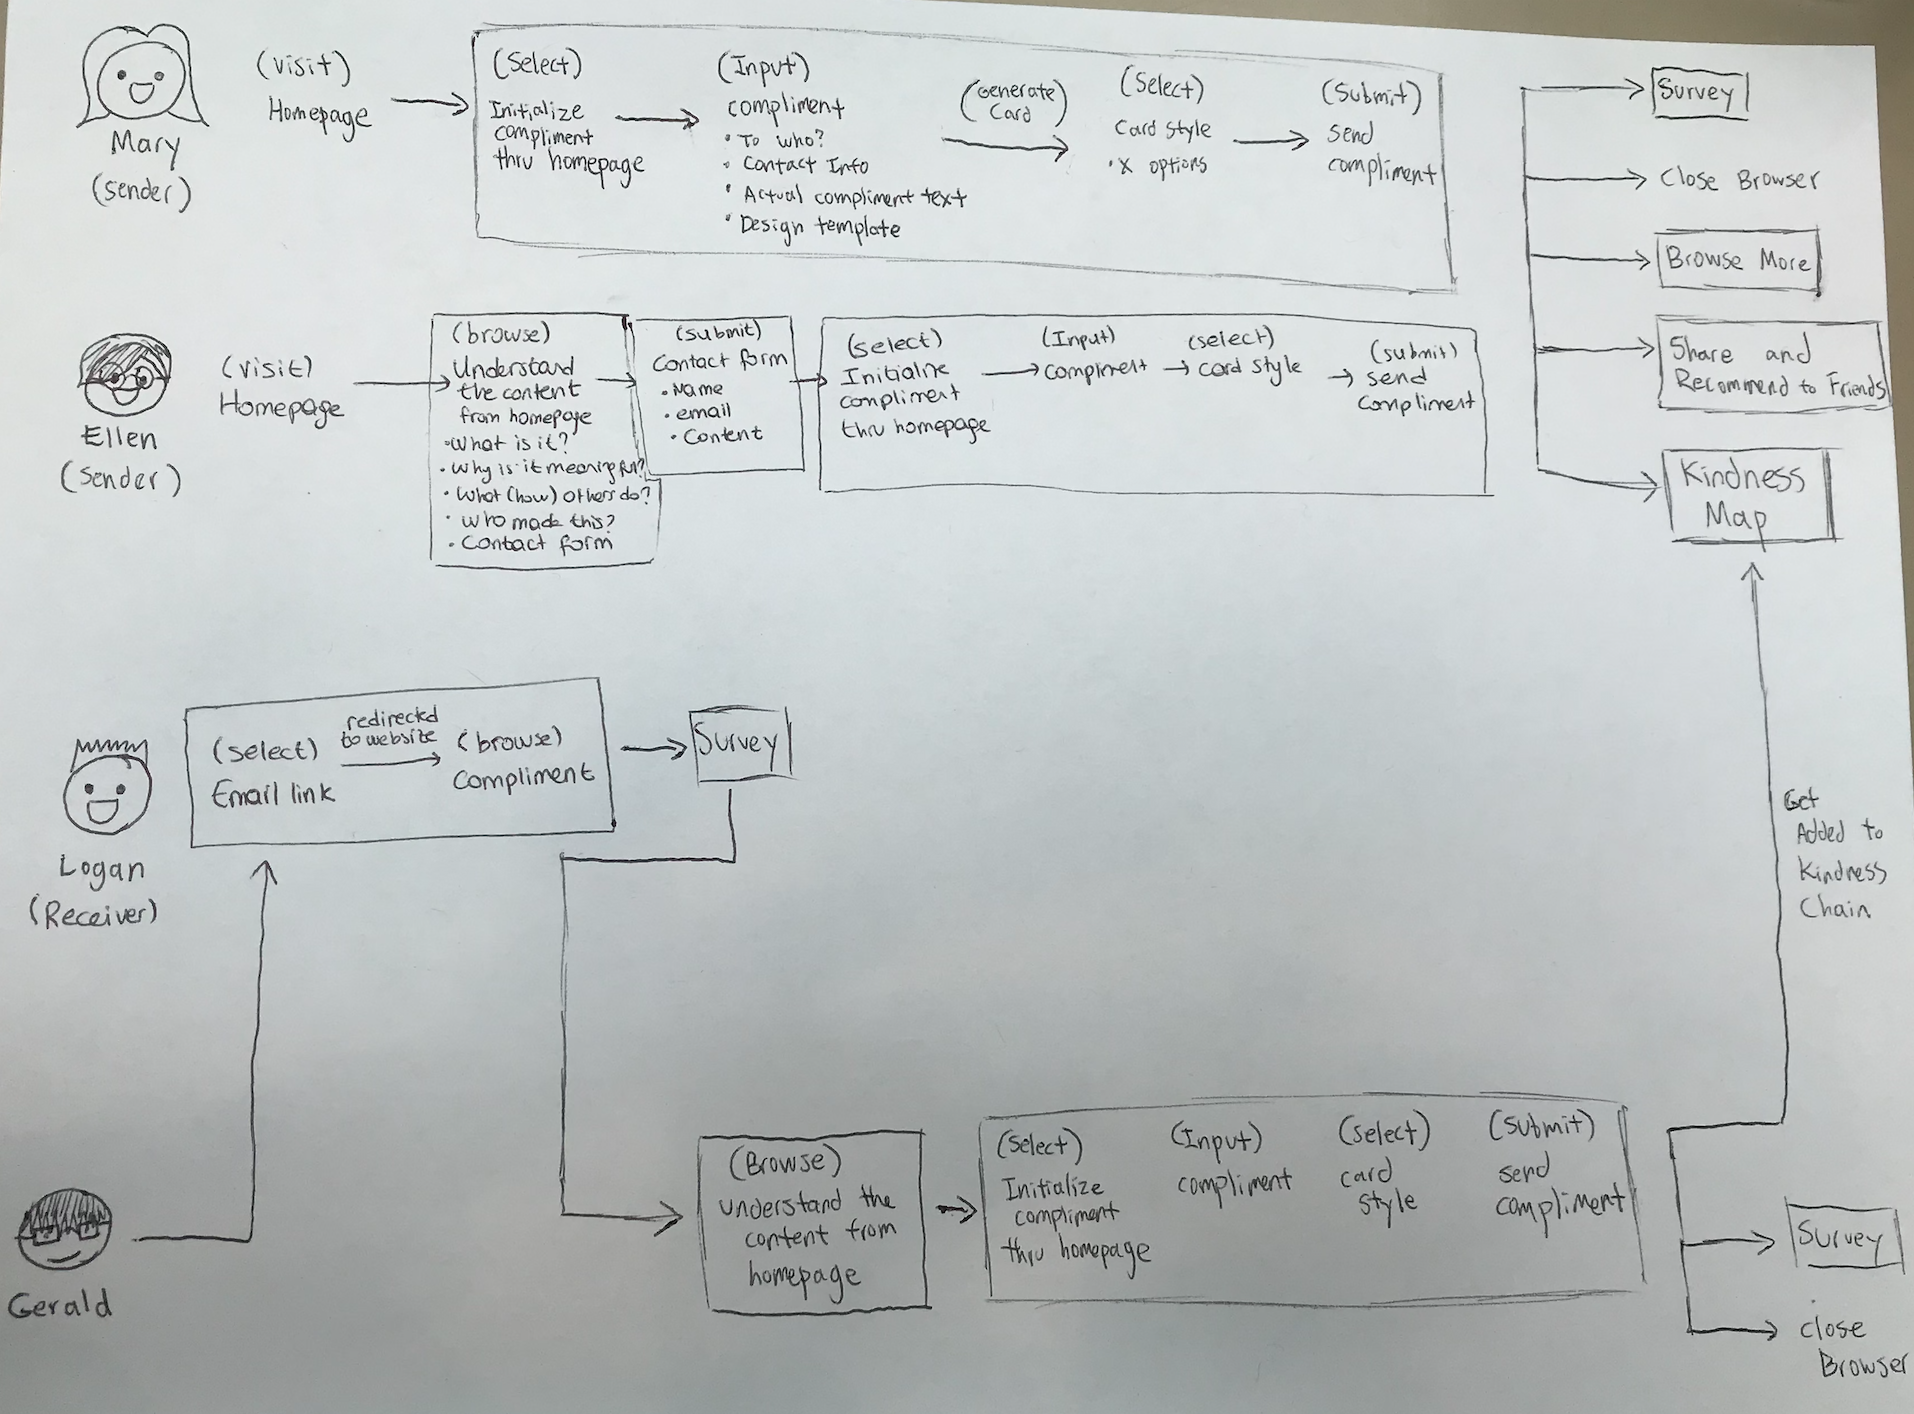 Mary
(sender)
(visit)
Homepage
(Select)
Initialize
compliment
thru homepage
(Input)
compliment
• To who?
• Contact Info
• Actual compliment text
• Design template
(Generate
Card)
(Select)
Card style
• X options
(Submit)
send
compliment
Survey
Close Browser
Browse More
Share and
Recommend to Friends
Kindness
Map
Ellen
(sender)
(visit)
Homepage
(browse)
Understand
the content
from homepage
• What is it?
• Why is it meaningful?
• What (how) others do?
• Who made this?
• Contact form
(submit)
Contact form
• Name
• email
• Content
(select)
Initialize
compliment
thru homepage
(Input)
compliment
(select)
card style
(submit)
send
compliment
Logan
(Receiver)
(select)
Email link
redirected
to website
(browse)
compliment
Survey
Get
Added to
Kindness
Chain
Gerald
(Browse)
understand the
content from
homepage
(Select)
Initialize
compliment
thru homepage
(Input)
compliment
(select)
card
style
(submit)
send
compliment
Survey
close
Browser